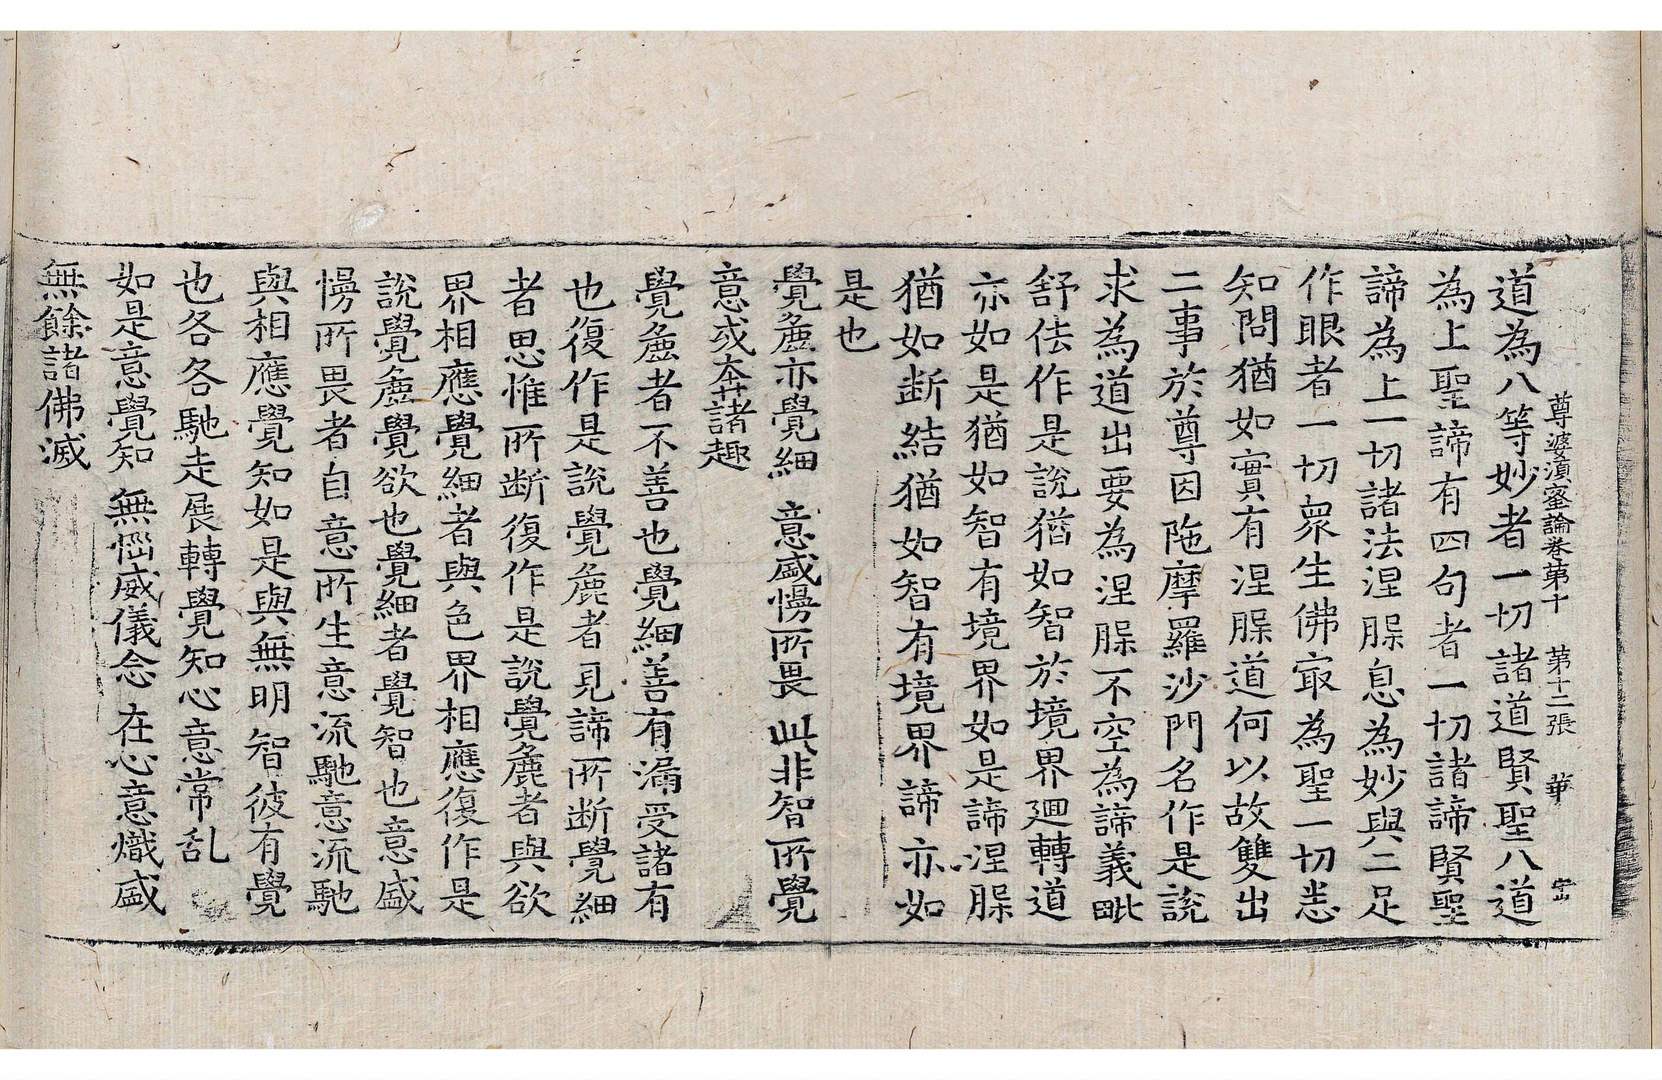 尊婆湏蜜論卷第十 第十二張 華 字
道為八等妙者一切諸道賢聖八道
為上聖諦有四句者一切諸諦賢聖
諦為上一切諸法涅脲息為妙與二足
作眼者一切衆生佛㝡為聖一切悉
知問猶如實有涅脲道何以故雙出
二事於尊因陁摩羅沙門名作是說
求為道出要為涅脲不空為諦義毗
舒佉作是說猶如智於境界迴轉道
亦如是猶如智有境界如是諦涅脲
猶如断結猶如智有境界諦亦如
是也
覺麁亦覺細 意盛慢所畏 此非智所覺
意或奔諸趣
覺麁者不善也覺細善有漏受諸有
也復作是說覺麁者見諦所断覺細
者思惟所断復作是說覺麁者與欲
界相應覺細者與色界相應復作是
說覺麁覺欲也覺細者覺智也意盛
慢所畏者自意所生意流馳意流馳
與相應覺知如是與無明智彼有覺
也各各馳走展轉覺知心意常乱
如是意覺知 無惱威儀念 在心意熾盛
無餘諸佛滅